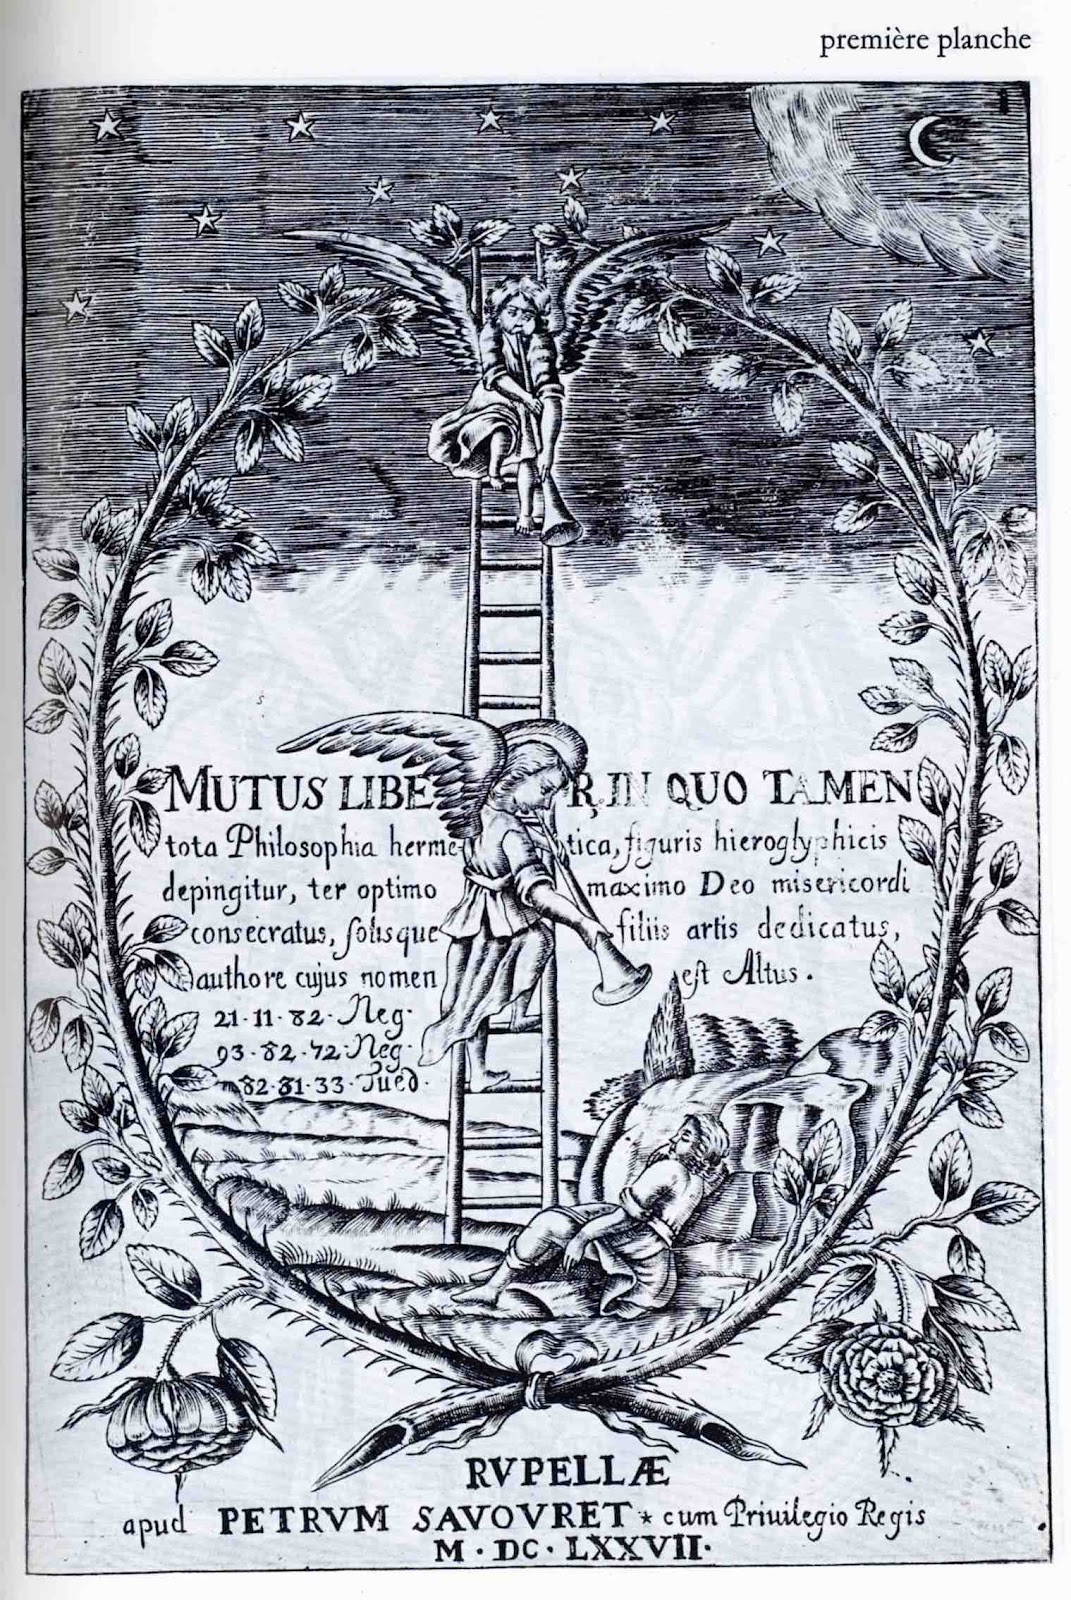 première planche
1
MUTUS LIBER, IN QUO TAMEN
tota Philosophia hermetica, figuris hieroglyphicis
depingitur, ter optimo maximo Deo misericordi
consecratus, solisque filiis artis dedicatus,
authore cujus nomen est Altus.
21·11·82·Neg·
93·82·72·Neg·
82·81·33·Tued·
RVPELLÆ
apud PETRVM SAVOVRET * cum Priuilegio Regis
M·DC·LXXVII·